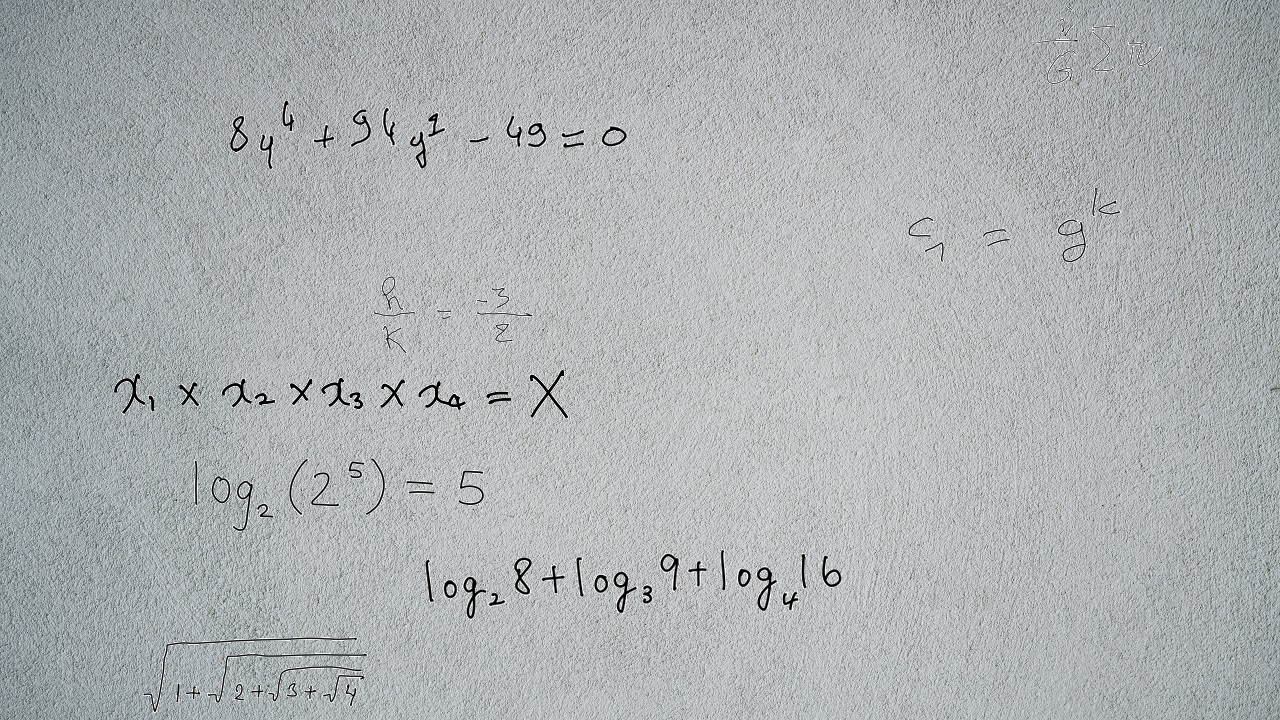 2/G ∑ w
8y⁴ + 94y² - 49 = 0
c₁ = gᵏ
h/k = -3/z
x₁ × x₂ × x₃ × x₄ = X
log₂(2⁵) = 5
log₂8 + log₃9 + log₄16
√(1+√(2+√(3+√4)))